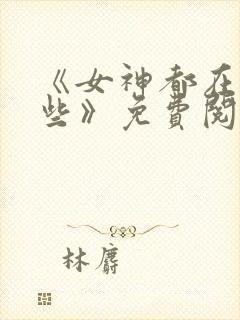 《女神都在
些》免費閱
林麝